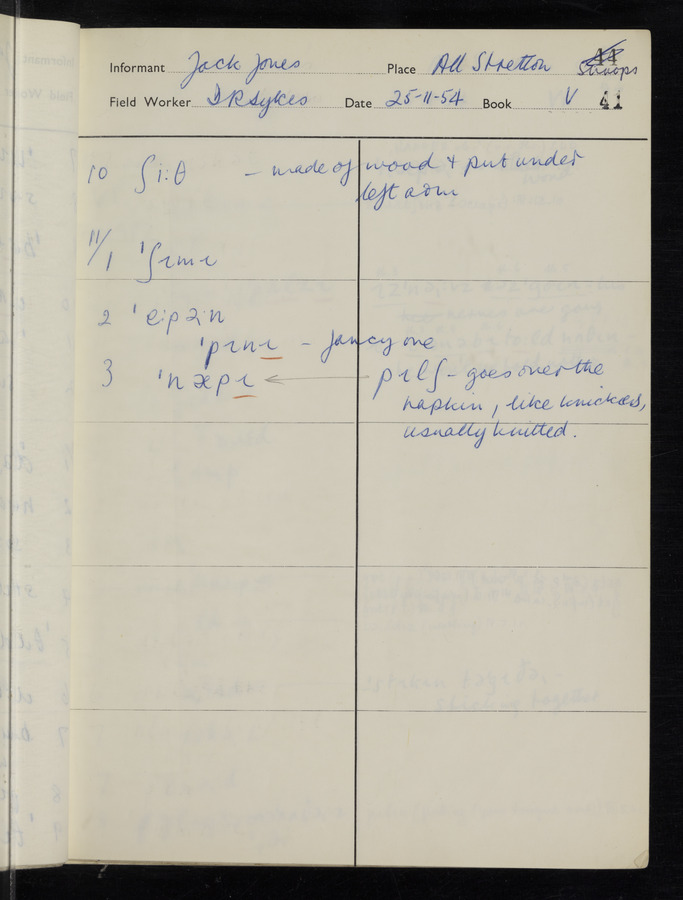 Informant Jack Jones Place All Stretton 44
Shrops
Field Worker D R Sykes Date 25-11-54 Book V 41
10 ʃi:θ – made of wood + put under
left arm
11/1 ˈʃɪmɪ
2 ˈeːpɹən
ˈpɪnɪ – fancy one
3 ˈnæpɪ ← pɪlʃ – goes over the
napkin, like knickers,
usually knitted.